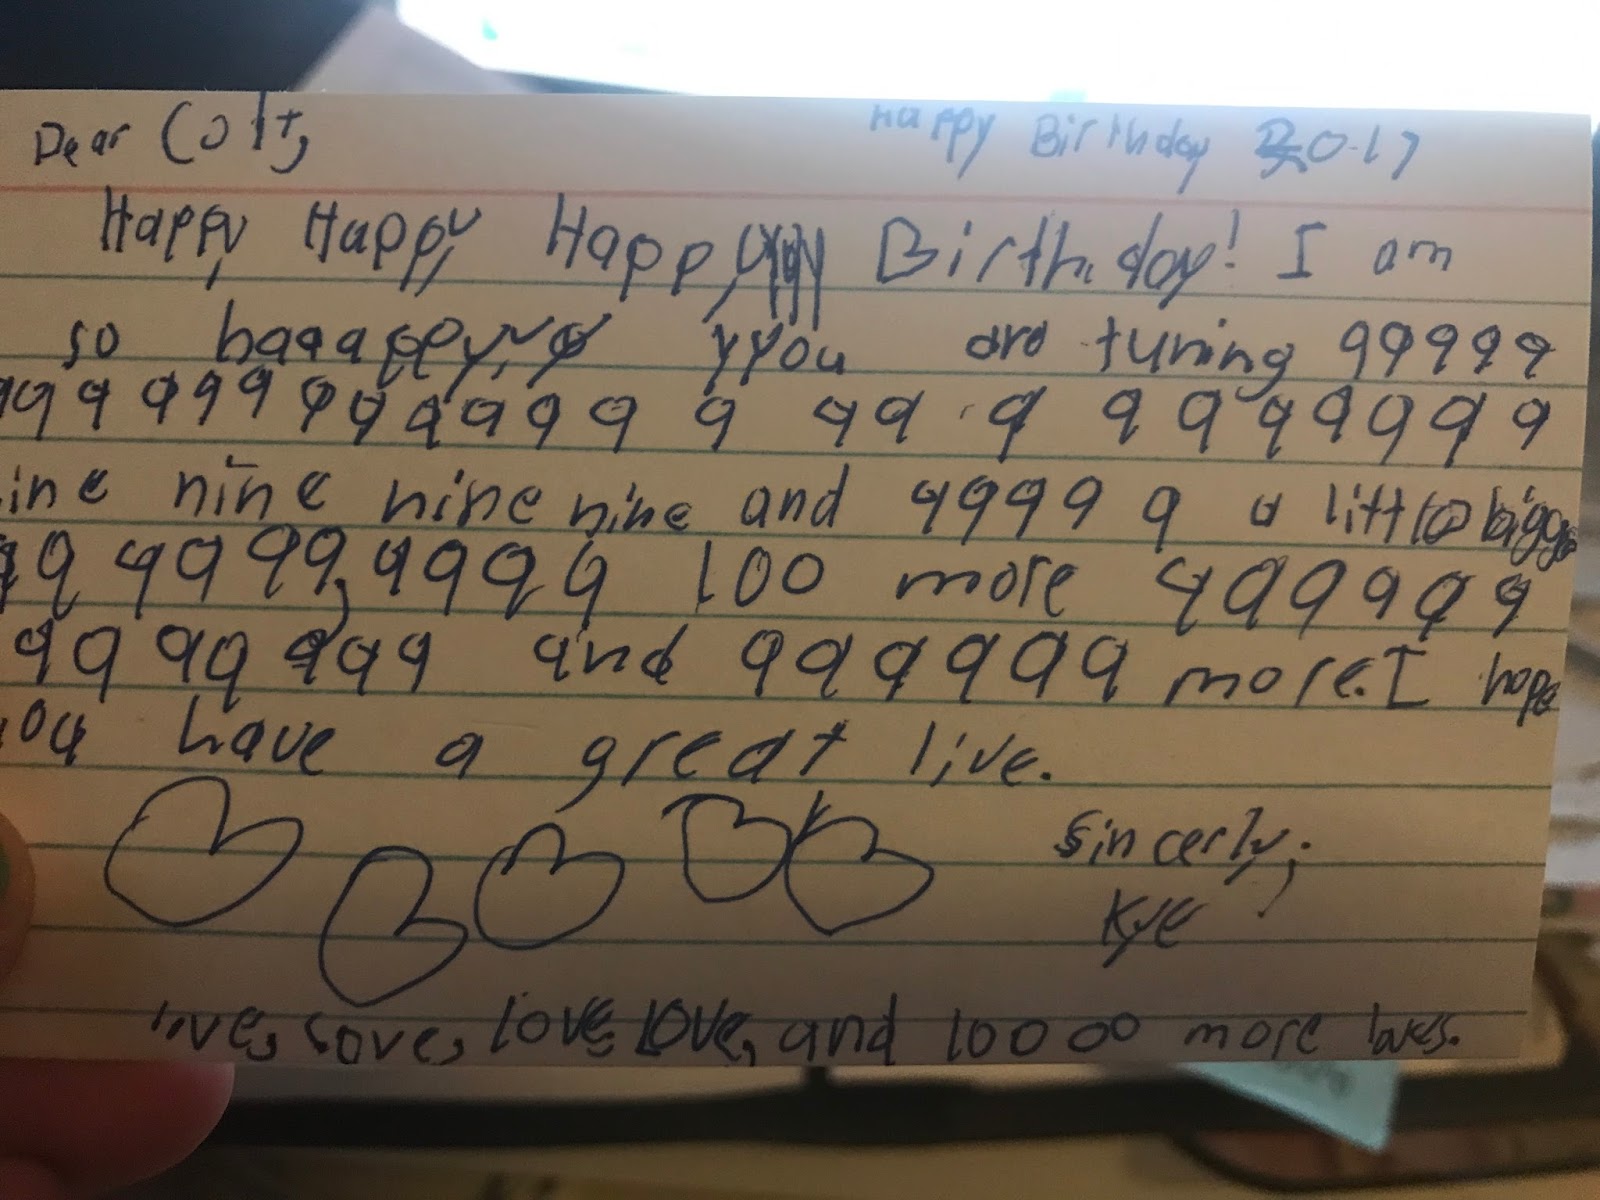 Dear Colt,
Happy Birthday 2017
Happy Happy Happyyyy Birthday! I am
so haaappy, yyou are tuning 99999
99 9 999 9 9 9 9 9 9 9 9 99 9 9 9 9 9 9 9 9
ine nine nine nine and 9999 9 a little bigger
99 99 99, 9999 9 100 more 999999
99 99 999 and 999999 more. I hope
you have a great live.
Sincerly,
Kye
love, love, love, love, and 10000 more loves.